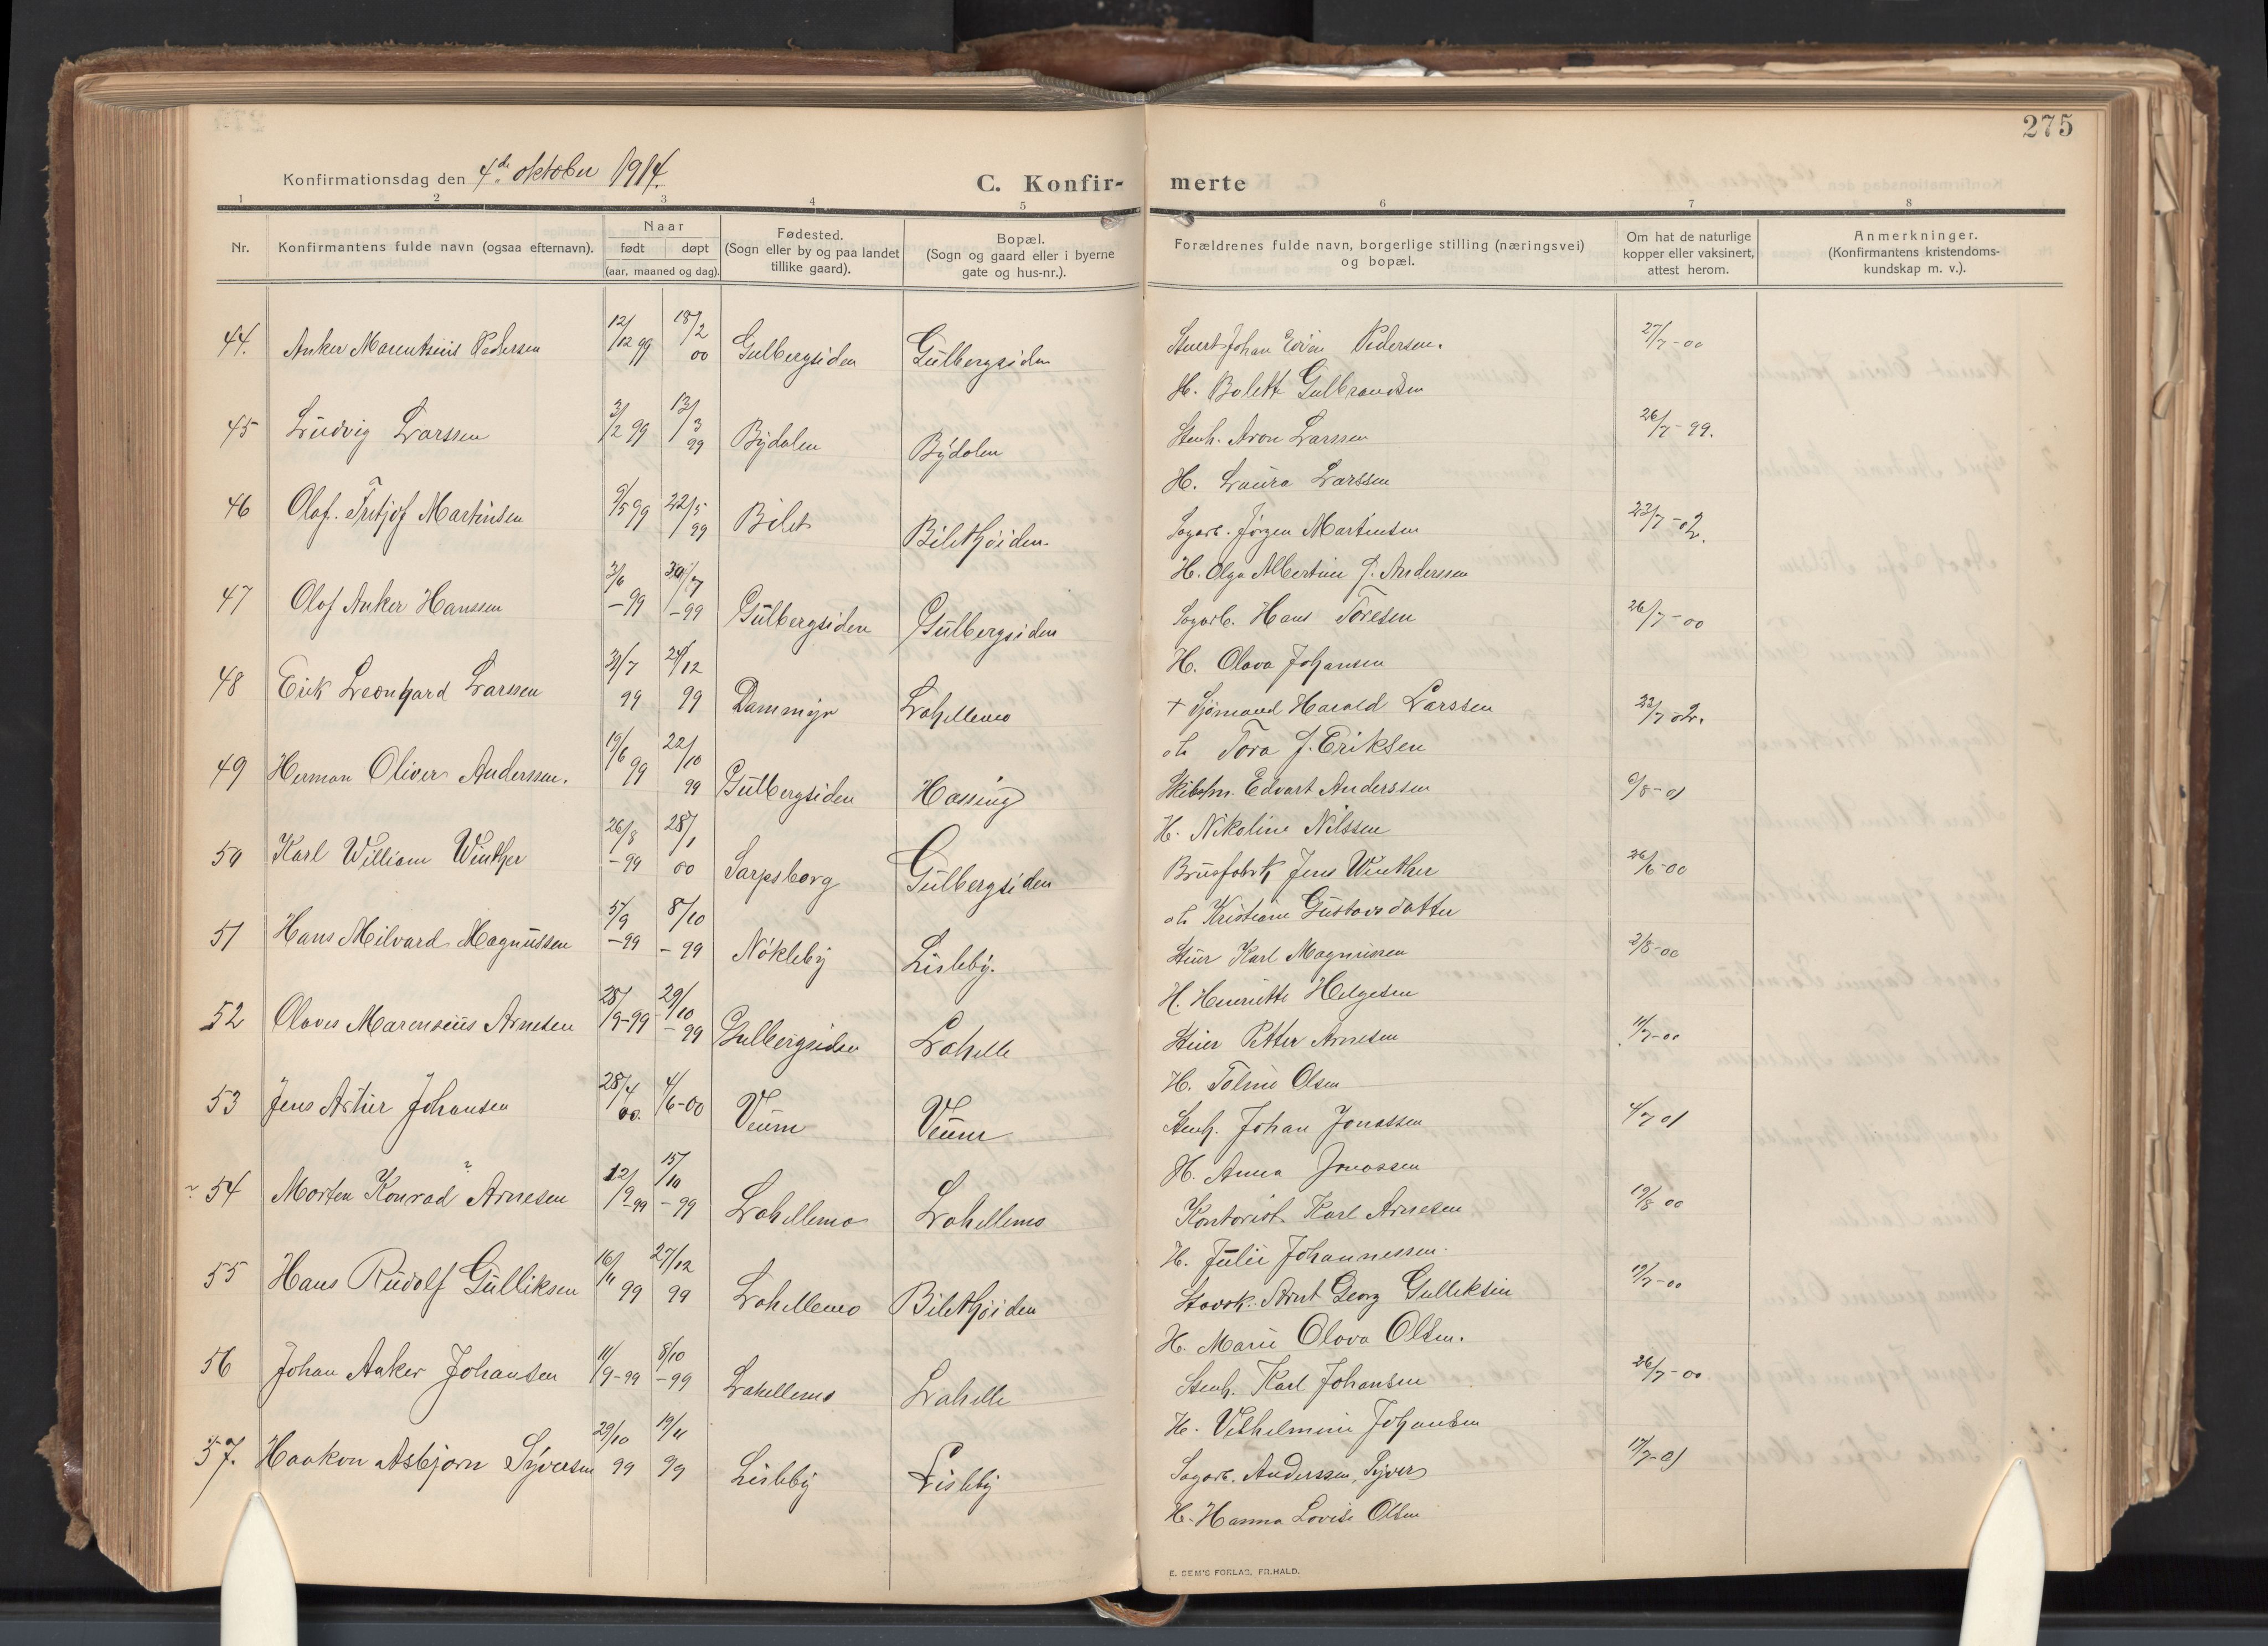 275
Konfirmationsdag den 4de oktober 1914.
C. Konfir- merte
1 2 3 4 5 6 7 8
Nr.
Konfirmantens fulde navn (ogsaa efternavn).
Naar
født døpt
(aar, maaned og dag).
Fødested.
(Sogn eller by og paa landet
tillike gaard).
Bopæl.
(Sogn og gaard eller i byerne
gate og hus-nr.).
Forældrenes fulde navn, borgerlige stilling (næringsvei)
og bopæl.
Om hat de naturlige
kopper eller vaksinert,
attest herom.
Anmerkninger.
(Konfirmantens kristendoms-
kundskap m. v.).
44. Anker Marentsius Pedersen 12/12 99 18/2 00 Gulbergsiden Gulbergsiden Stuert Johan Pedersen. 27/7-00
H. Bolette Gulbrandsen
45 Ludvig Larssen 3/2 99 13/3 99 Bydalen Bydalen Stenh. Aron Larssen 26/7-99.
H. Laura Larssen
46 Olaf. Fritjof Martinsen 9/5 99 22/5 99 Bilet Biletthøiden. Sagarb. Jørgen Martinsen 23/7-02.
H. Olga Albertine J. Anderssen
47 Olaf Anker Hanssen 3/6 -99 30/7 -99 Gulbergsiden Gulbergsiden Sagarb. Hans Toresen 26/7-00
H. Olava Johansen
48 Erik Leonhard Larssen 31/7 99 24/12 99 Dammyr Lahellemo + Sjømand Harald Larssen 22/7 02.
oh Tora J. Eriksen
49 Herman Oliver Anderssen. 19/6 99 22/10 99 Gulbergsiden Hassing Skibstm. Edvart Anderssen 6/8-01
H. Nikoline Nilssen
50 Karl William Winther 26/8 -99 28/1 00 Sarpsborg Gulbergsiden Brusfabrk Jens Winther 26/6-00
oh Kristiane Gustavsdatter
51 Hans Milvard Magnussen 5/9 -99 8/10 -99 Nökleby Lisleby. Stuer Karl Magnussen 2/8-00
H. Henriette Helgesen
52 Olaves Marensius Arnesen 28/9-99 29/10 -99 Gulbergsiden Lahelle Stuer Petter Arnesen 11/7-00
H. Toline Olsen
53 Jens Artur Johansen 28/4 00. 4/6-00 Veum Veum Stenh. Johan Jonassen 4/7 01
H. Anna Jonassen
54 Morten Konrad Arnesen 12/9-99 15/10 -99 Lahellemo Lahellemo Kontorist Karl Arnesen 19/8 00
H. Julie Johannessen.
55 Hans Rudolf Gulliksen 16/11 99 27/12 99 Lahellemo Biletthøiden Arnt Georg Gulleksen 19/7-00
H. Marie Olava Olsen.
56 Johan Anker Johansen 11/9-99 8/10 -99 Lahellemo Lahelle Stenh. Karl Johansen 26/7-00
H. Vilhelmine Johansen
57. Haakon Asbjørn Syversen 29/10 99 19/11 99 Lisleby Lisleby Sagarb. Anderssen, Syver 17/7-01
H. Hanna Lovise Olsen
E. SEM'S FORLAG, FR.HALD.